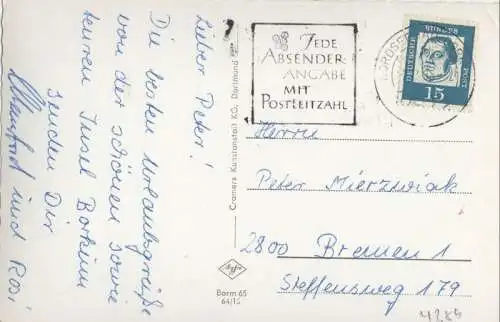 Lieber Peter!
Die besten Urlaubsgrüße
von der schönen sowie
teuren Insel Borkum
senden Dir
Manfred und Rosi
Cramers Kunstanstalt KG, Dortmund
Agfa
Borm 65
64/15
JEDE
ABSENDER-
ANGABE
MIT
POSTLEITZAHL
DEUTSCHE BUNDESPOST
15
Herrn
Peter Mierzwiak
2800 Bremen 1
Steffensweg 179
4285